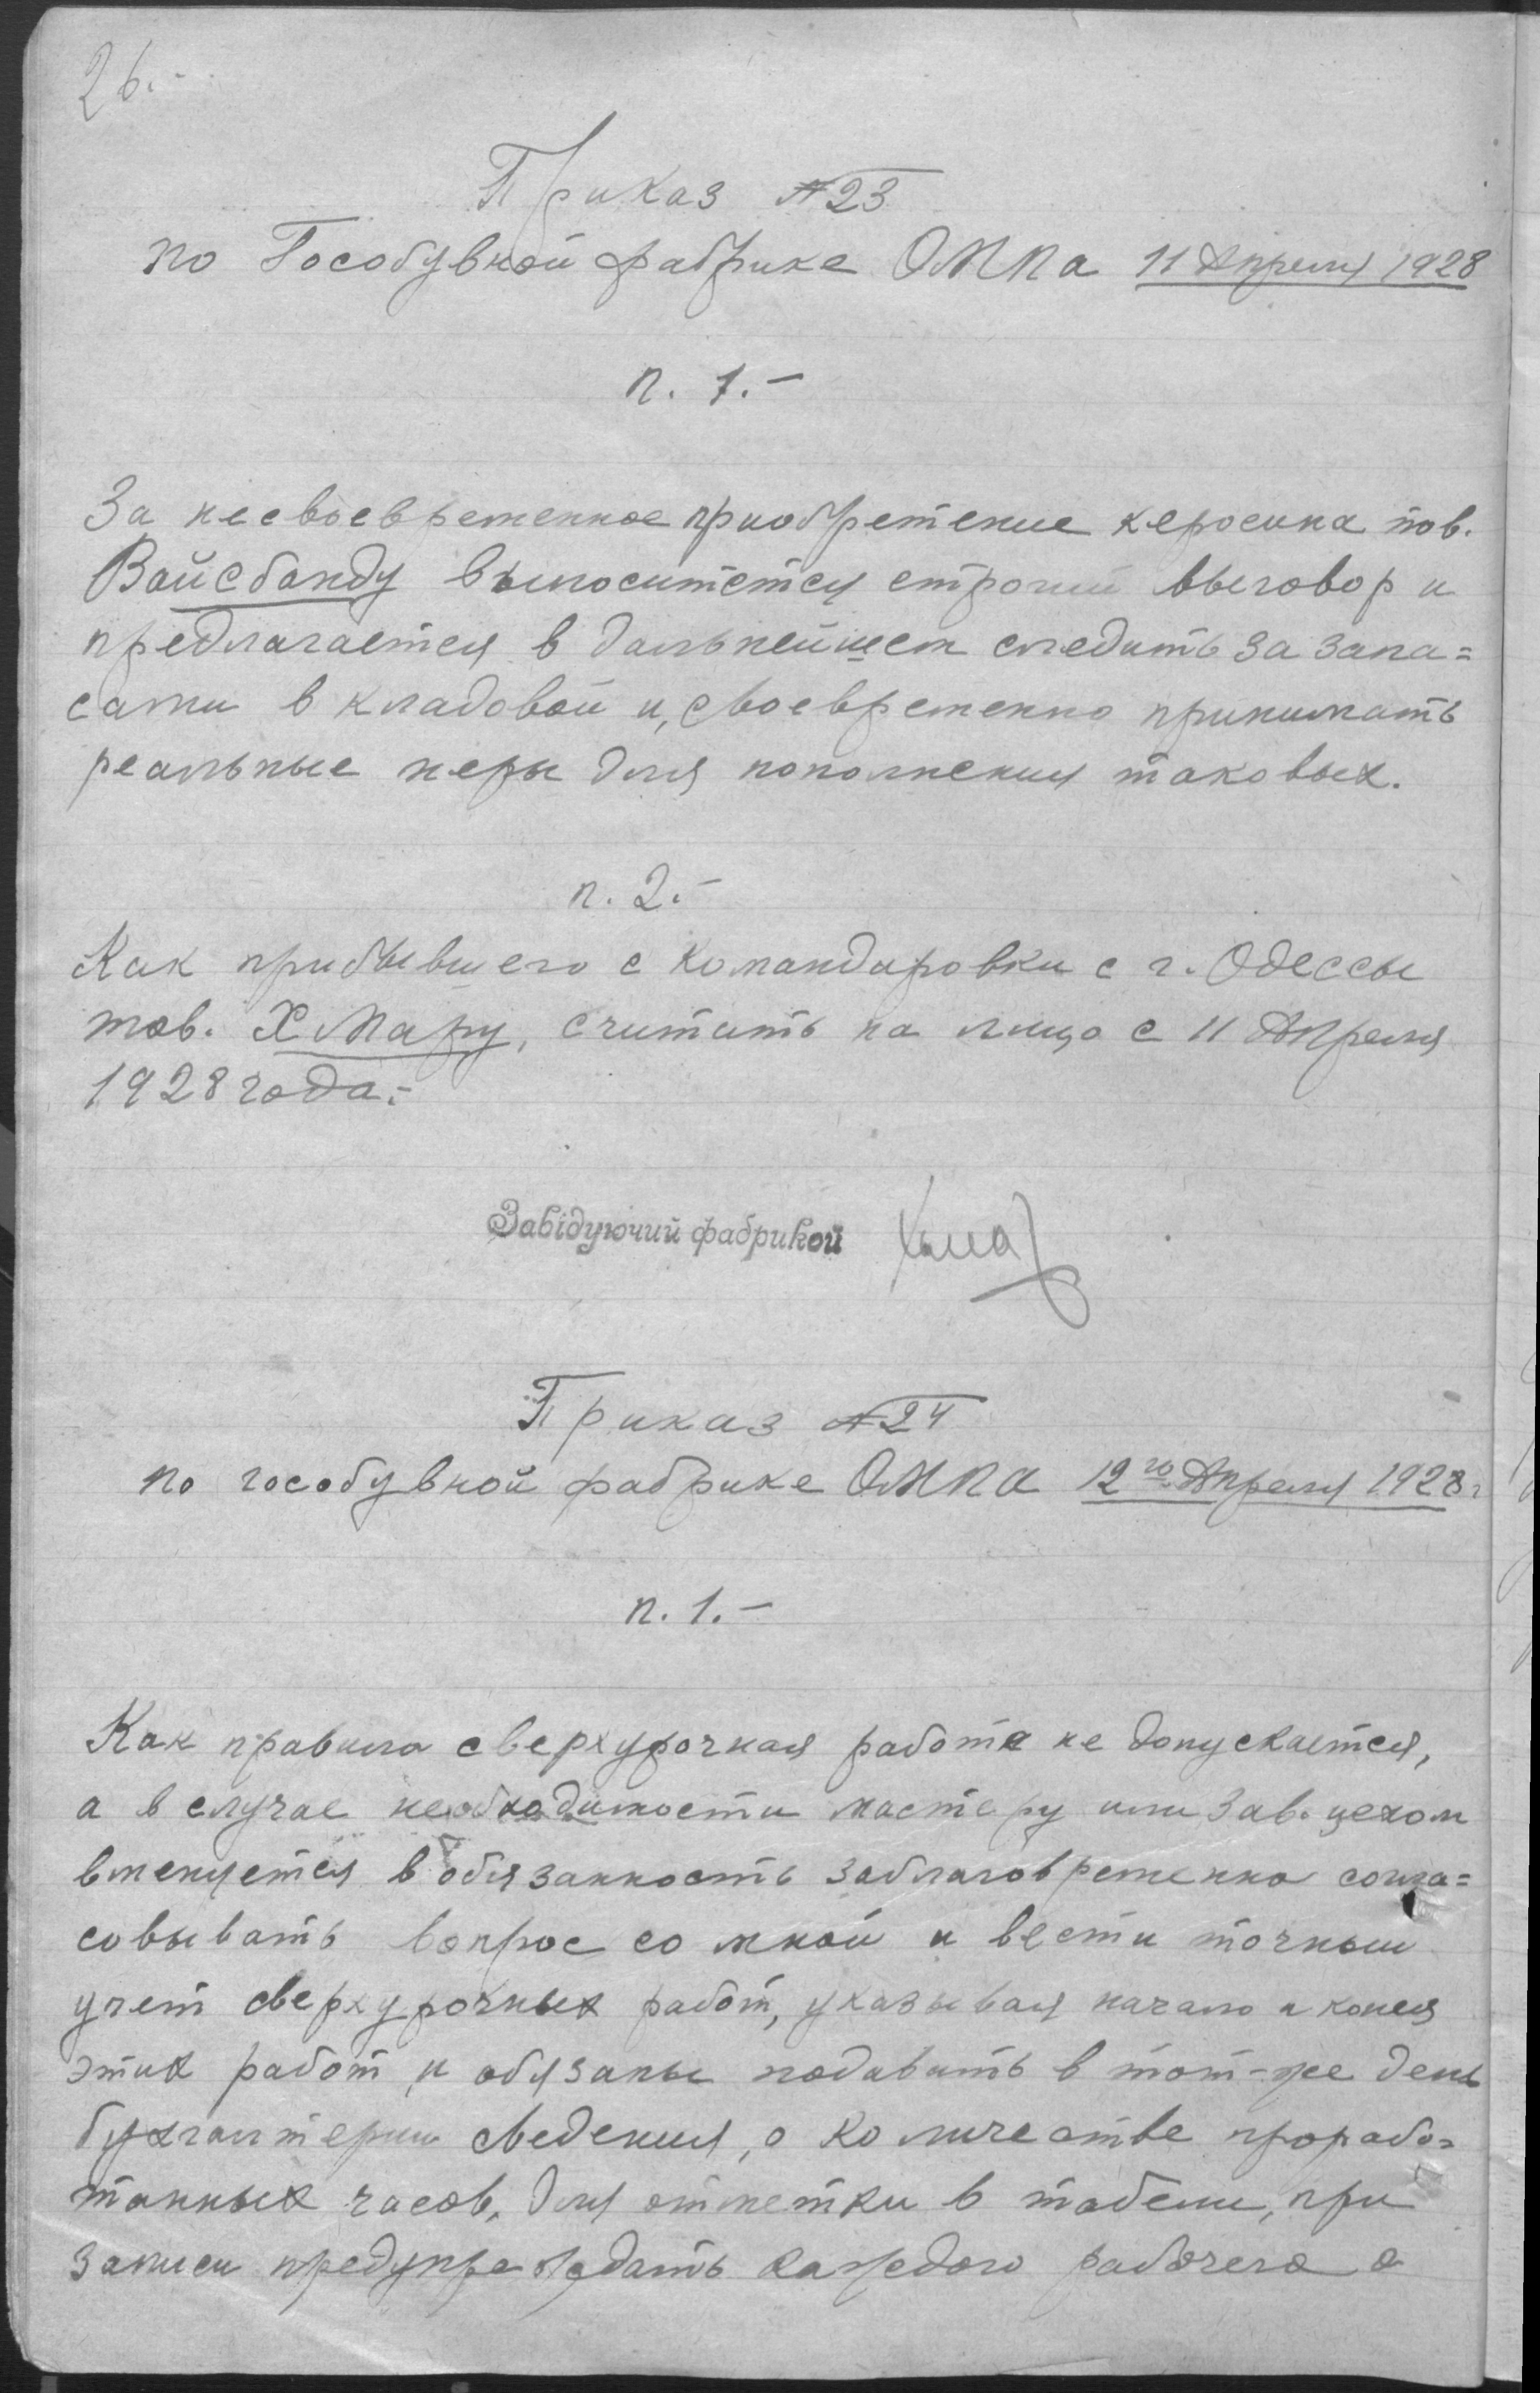 26.-
Приказ №23
по Гособувной фабрике ОМПа 11 Апреля 1928
п. 1.-
За несвоевременное приобретение керосина тов.
Вайсбанду выноситется строгий выговор и
предлагается в дальнейшем следить за запа=
сами в кладовой и, своевременно принимать
реальные меры для пополнения таковых.
п. 2.-
Как прибывшего с командировки с г. Одессы
тов. Хмару, считать на лицо с 11 Апреля
1928 года.-
Завідуючий фабрикой Хмар
Приказ №24
по гособувной фабрике ОМПа 12го Апреля 1928г
п. 1.-
Как правило сверхурочная работа не допускается,
а в случае необходимости мастеру или Зав. цехом
вменяется в обязанность заблаговременно согла=
совывать вопрос со мной и вести точный
учет сверхурочных работ, указывая начало и конец
этих работ, и обязаны подавать в тот-же день
бухгалтерии сведения, о количестве прорабо=
танных часов, для отметки в табели, при
записи предупреждать каждого рабочего о